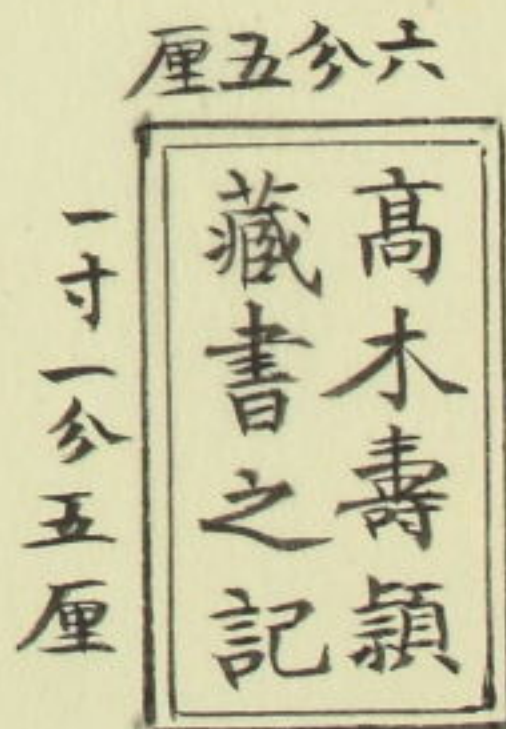 六分五厘
髙木壽頴
藏書之記
一寸一分五厘